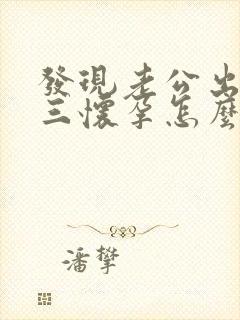 發現老公出
三懷孕怎麼
潘攀